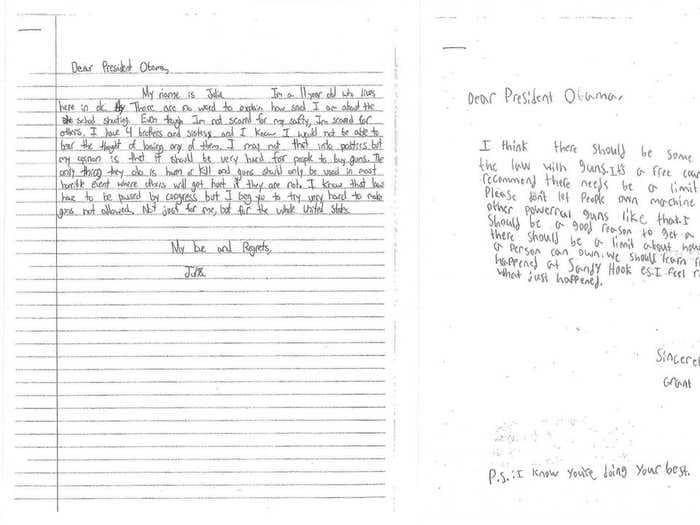 Dear President Obama,
My name is Julia Im a 11 year old who lives
here in dc. There are no word to explain how sad I am about the
school shooting. Even though Im not scared for my safty, Im scared for
others. I have 4 brothers and sisters and I know I would not be able to
bear the thought of losing any of them. I may not that into politics but
my opinion is that it should be very hard for people to buy guns. The
only thing they do is harm or kill and guns should only be used in most
horrible event where others will get hurt if they are not. I know that laws
have to be passed by congress but I beg you to try very hard to make
guns not allowed. Not just for me, but for the whole United States.
My love and Regrets,
Julia
Dear President Obama,
I think there should be some
the law with guns. Its a free
recommend there needs be a limit
Please don't let People own machine
other powerful guns like that. I
should be a good reason to get a
there should be a limit about
a person can own. we should learn
happened at Sandy Hook es. I feel
what just happened.
Grant
P.s.: I know you're doing your best.